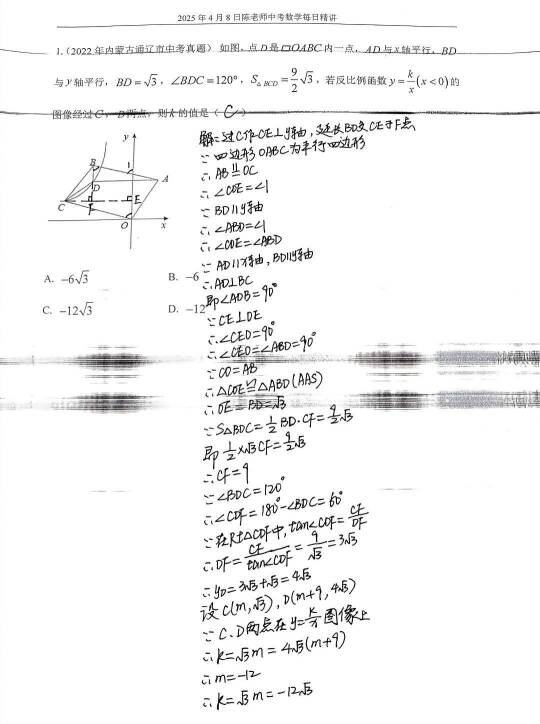 2025 年 4 月 8 日陈老师中考数学每日精讲
1.（2022 年内蒙古通辽市中考真题）如图，点 D 是 □OABC 内一点，AD 与 x 轴平行，BD
与 y 轴平行，BD=√3，∠BDC=120°，S△BCD=9/2√3，若反比例函数 y=k/x(x<0)的
图像经过 C，D 两点，则 k 的值是（ C ）
y
B
1
D
A
C
F
E
O
x
A. −6√3
B. −6
C. −12√3
D. −12
解：过C作CE⊥y轴，延长BD交CE于F点
∵四边形OABC为平行四边形
∴AB∥OC
∴∠COE=∠1
∵BD∥y轴
∴∠ABD=∠1
∴∠COE=∠ABD
∵AD∥x轴，BD∥y轴
∴AD⊥BC
即∠ADB=90°
∵CE⊥OE
∴∠CEO=90°
∴∠CEO=∠ABD=90°
∵CO=AB
∴△COE≌△ABD(AAS)
∴OE=BD=√3
∵S△BDC=1/2BD·CF=9/2√3
即1/2×√3CF=9/2√3
∴CF=9
∵∠BDC=120°
∴∠CDF=180°-∠BDC=60°
∵在Rt△CDF中，tan∠CDF=CF/DF
∴DF=CF/tan∠CDF=9/√3=3√3
∴yD=3√3+√3=4√3
设C(m,√3)，D(m+9,4√3)
∵C、D两点在y=k/x图像上
∴k=√3m=4√3(m+9)
∴m=-12
∴k=√3m=-12√3